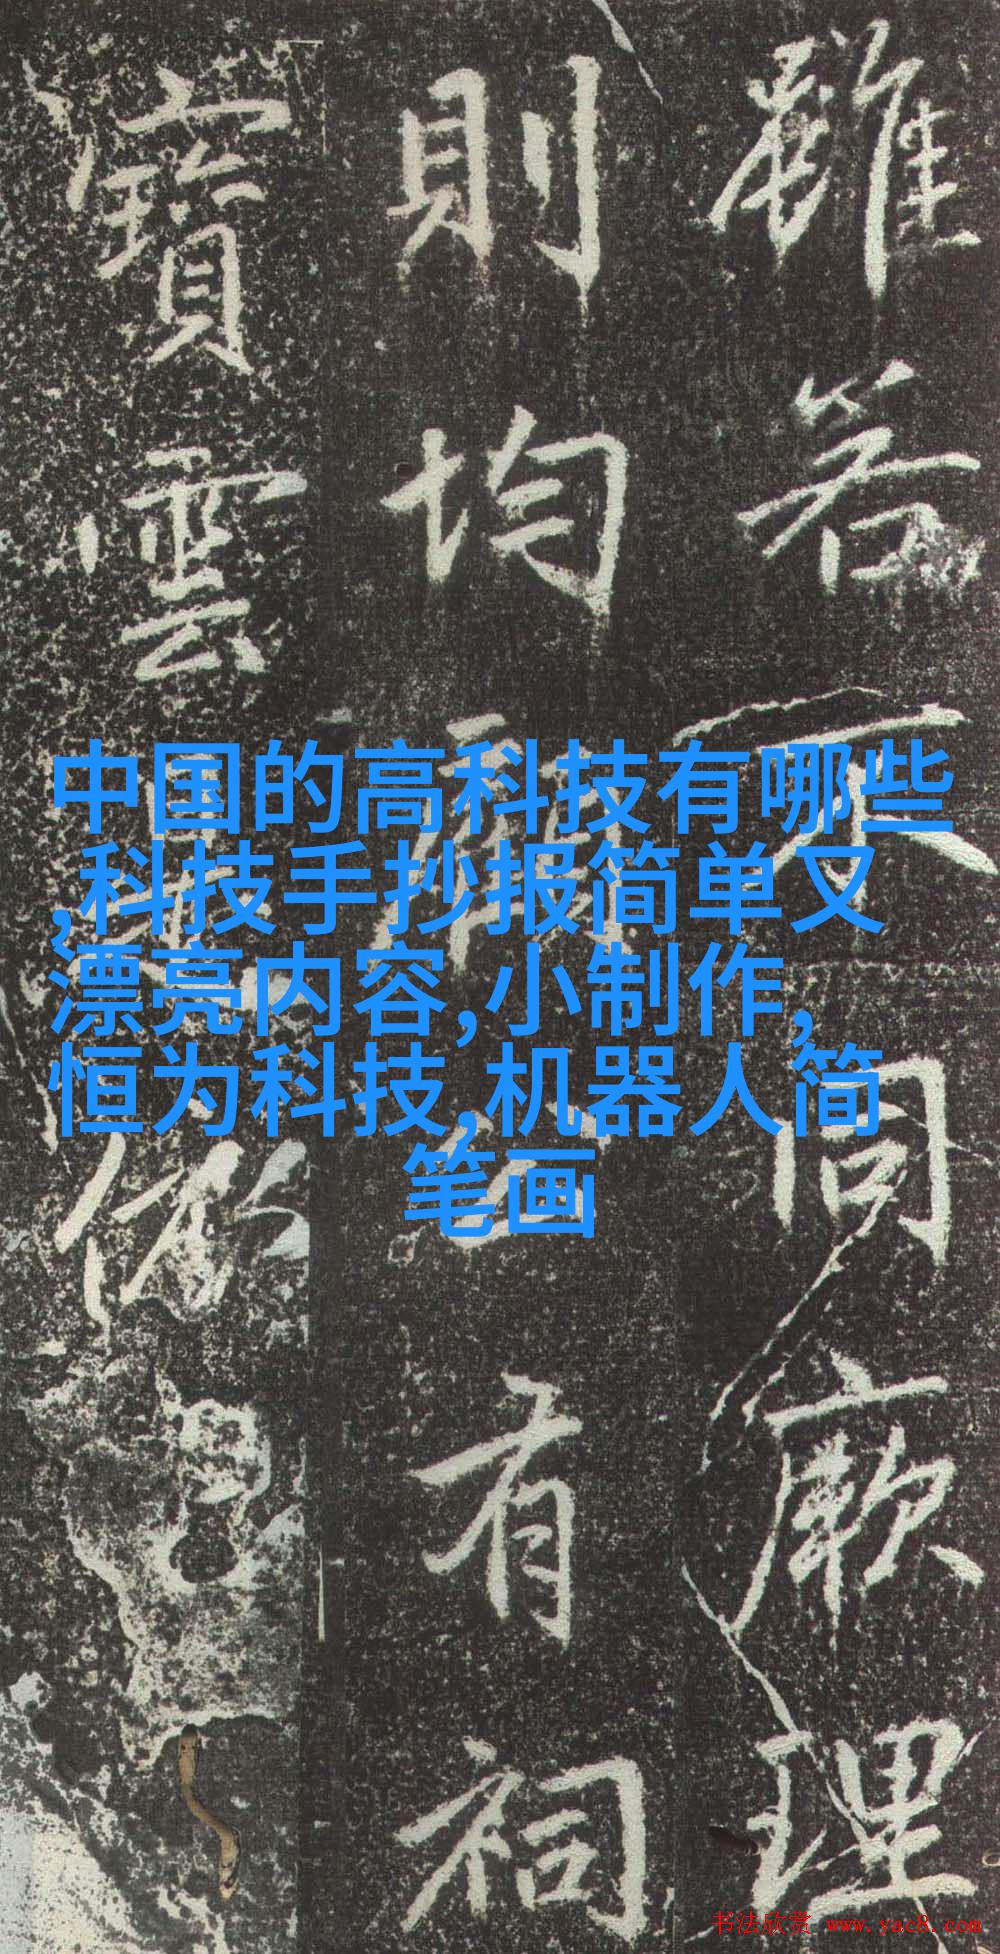 雖若不同厥理
則均
有祠
寶雲
中国的高科技有哪些
,科技手抄报简单又
漂亮内容,小制作,
恒为科技,机器人简
笔画
书法欣赏 www.yac8.com